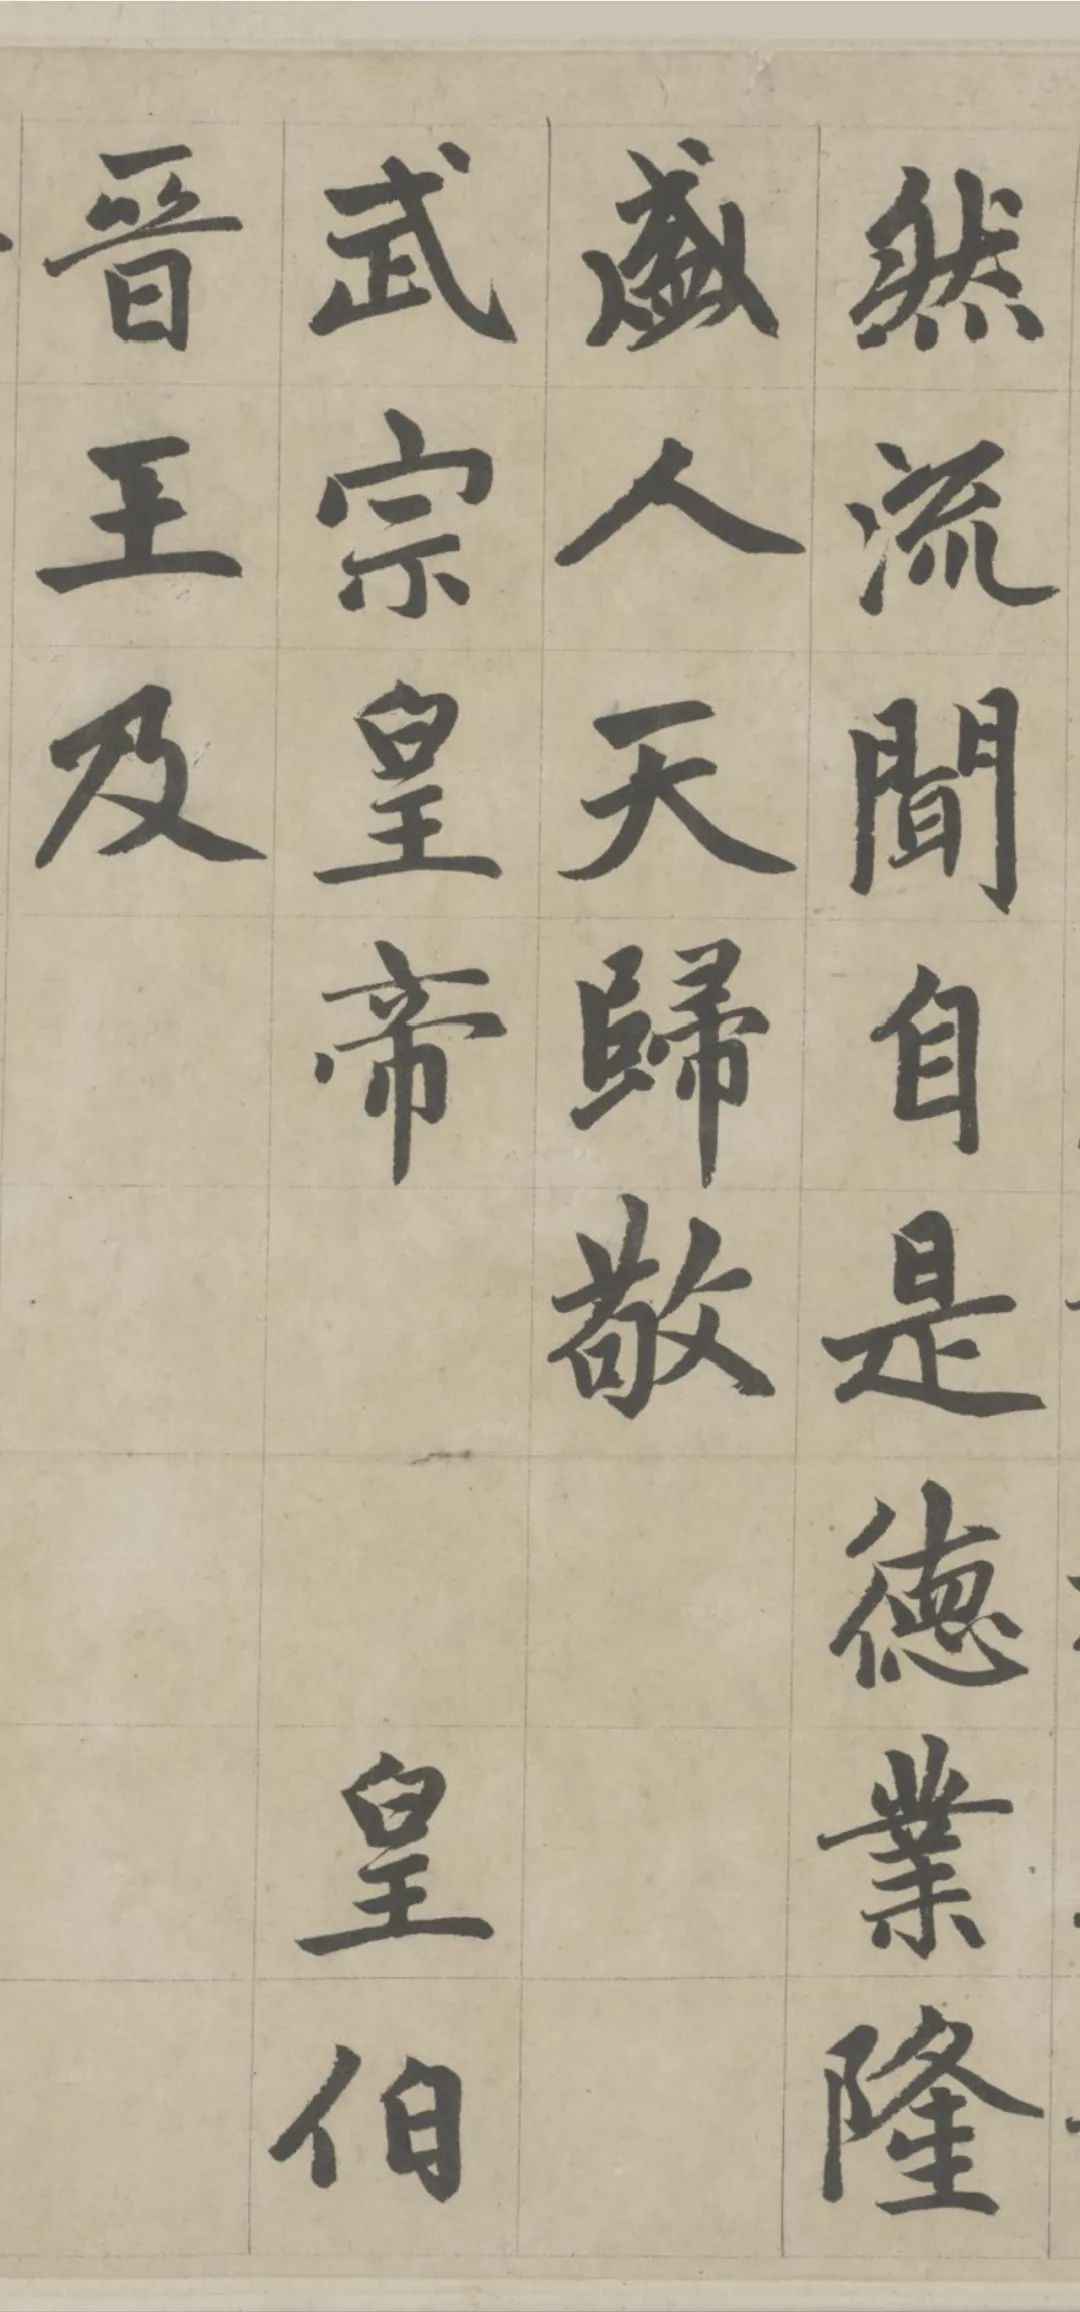 然流聞自是德業隆
盛人天歸敬
武宗皇帝皇伯
晉王及